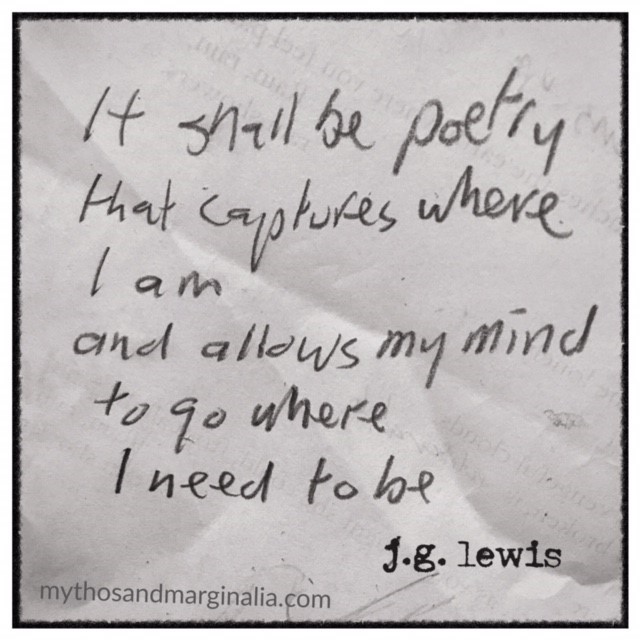 It shall be poetry
that captures where
I am
and allows my mind
to go where
I need to be
j.g. lewis
mythosandmarginalia.com